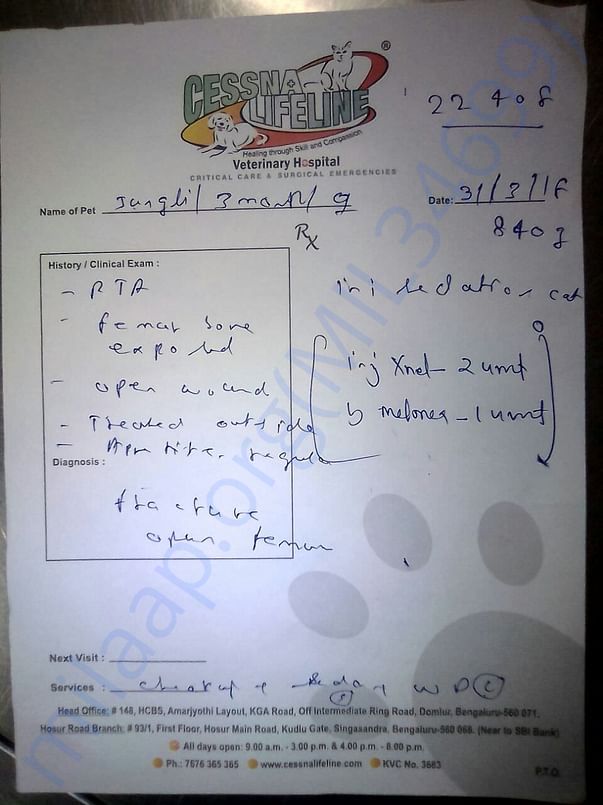 CESSNA
LIFELINE
®
Healing through Skill and Compassion
Veterinary Hospital
CRITICAL CARE & SURGICAL EMERGENCIES
22408
Name of Pet Jungli / 3 month / ♀
Date: 31/3/16
Rx
840g
History / Clinical Exam :
- RTA
- femur bone
exposed
- open wound
- Treated outside
Diagnosis :
fracture
open femur
inj sedation cat
inj Xnel - 2 unit
melonex - 1 unit
Next Visit :
Services :
Head Office: # 148, HCBS, Amarjyothi Layout, KGA Road, Off Intermediate Ring Road, Domlur, Bengaluru-560 071.
Hosur Road Branch: # 93/1, First Floor, Hosur Main Road, Kudlu Gate, Singasandra, Bengaluru-560 068. (Near to SBI Bank)
All days open: 9.00 a.m. - 3.00 p.m. & 4.00 p.m. - 8.00 p.m.
Ph.: 7676 365 365 www.cessnalifeline.com KVC No. 3683
P.T.O.
milaap.org(MIL34699)